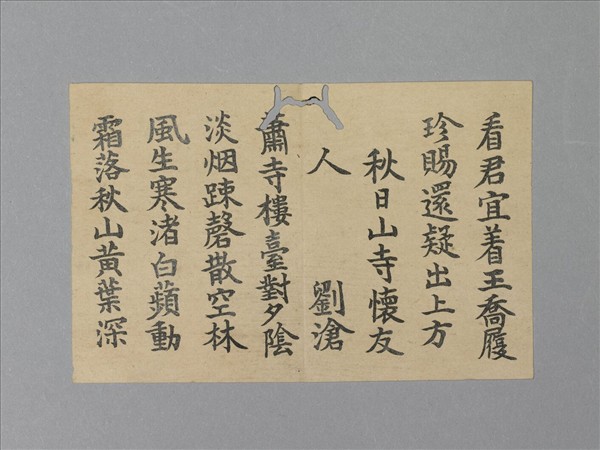 看君宜着王喬履
珍賜還疑出上方
秋日山寺懷友
人 劉滄
蕭寺樓臺對夕陰
淡烟踈磬散空林
風生寒渚白蘋動
霜落秋山黃葉深